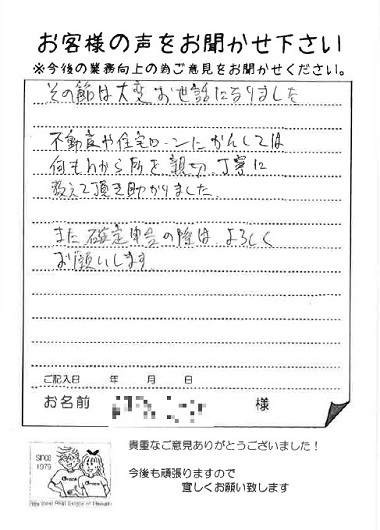 お客様の声をお聞かせ下さい
※今後の業務向上の為ご意見をお聞かせください。
その節は大変お世話になりました
不動産や住宅ローンにかんしては
何もわから所を親切丁寧に
教えて頂き助かりました
また確定申告の際はよろしく
お願いします
ご記入日 年 月 日
お名前 様
SINCE
1979
貴重なご意見ありがとうございました!
今後も頑張りますので
宜しくお願い致します